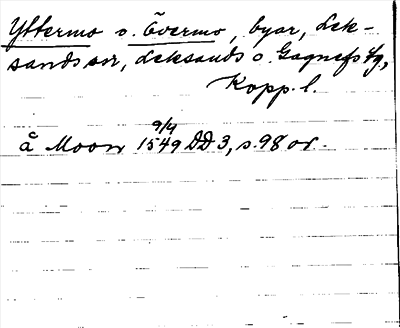 Yttermo o. Övermo, byar, Lek-
sands sn, Leksands o. Gagnefs tg,
Kopp. l.
9/4
å Moon 1549 DD 3, s. 98 or.